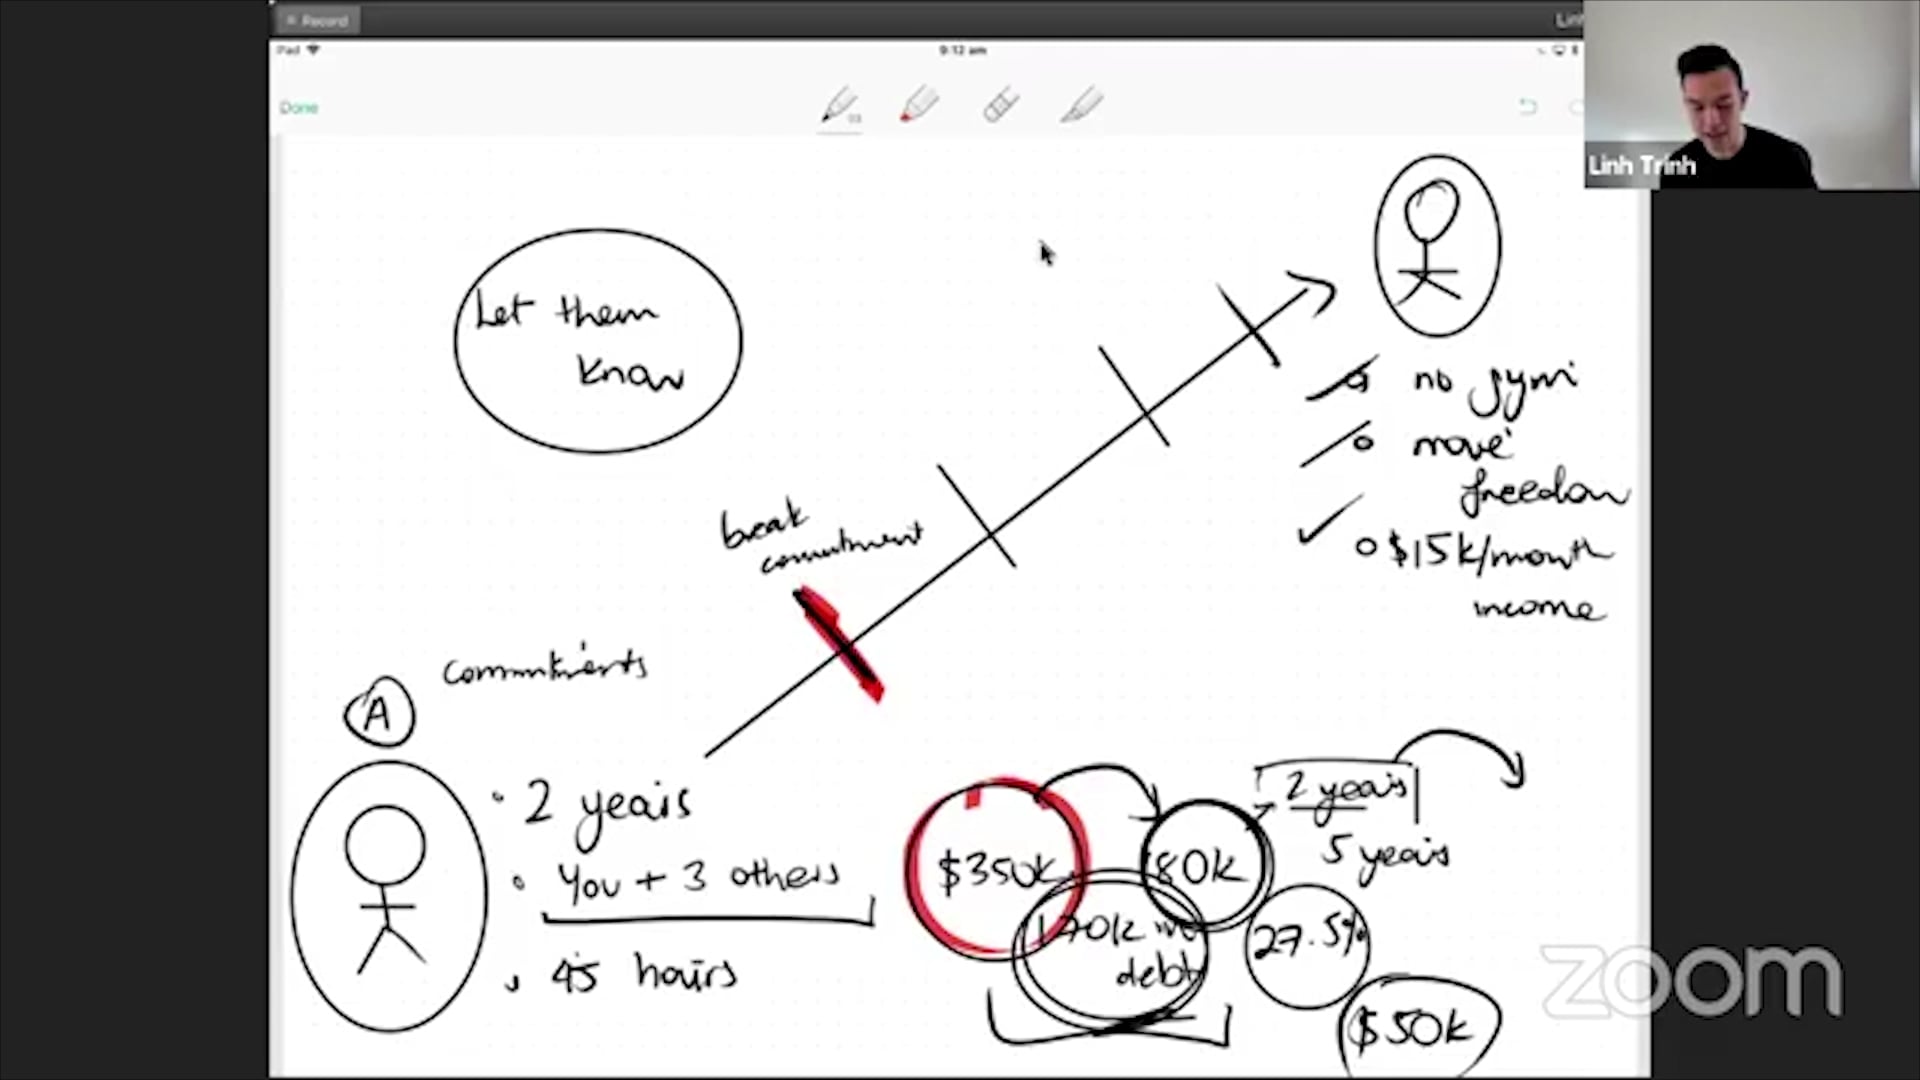 Record
Linh
iPad
9:12 am
Done
Linh Trinh
Let them
know
no gym
move
freedom
$15k/month
income
break
commitment
commitments
A
2 years
You + 3 others
45 hours
$350k
80k
2 years
5 years
170k
debt
27.5%
$50k
zoom